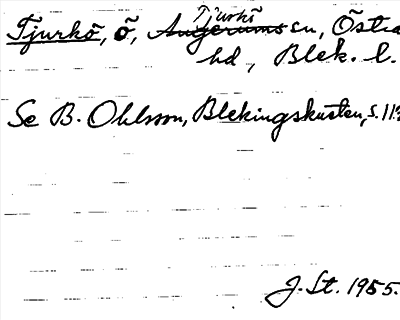 Tjurkö
Tjurkö, ö, Augerums sn, Östra
hd, Blek. l.
Se B. Ohlsson, Blekingskusten, s. 113
J. St. 1955.